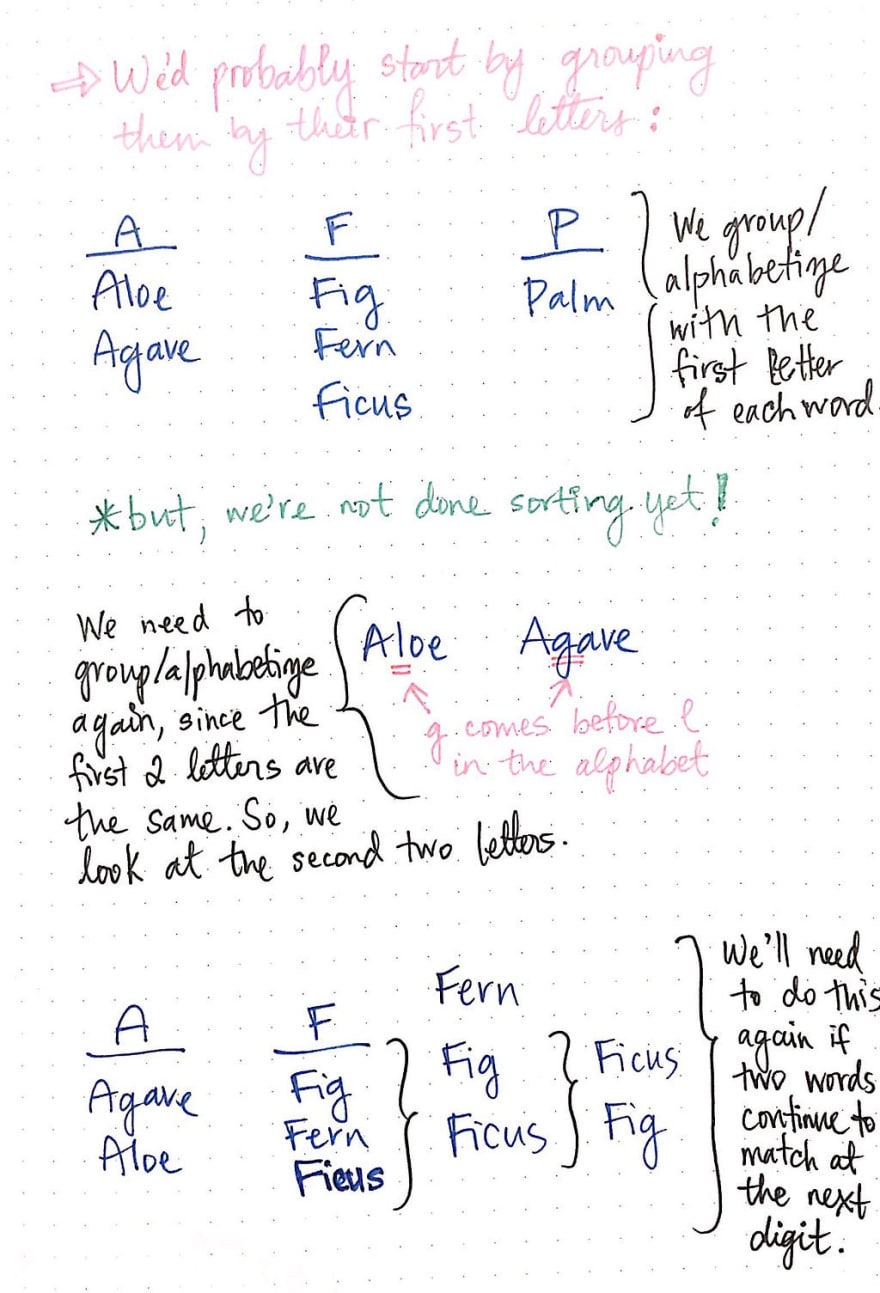 ⇒ We'd probably start by grouping
them by their first letters:
A F P
Aloe Fig Palm
Agave Fern
Ficus
We group/
alphabetize
with the
first letter
of each word.
*but, we're not done sorting yet!
We need to
group/alphabetize
again, since the
first 2 letters are
the same. So, we
look at the second two letters.
Aloe Agave
g comes before l
in the alphabet
A F
Agave Fig
Aloe Fern
Ficus
Fern
Fig
Ficus
Ficus
Fig
We'll need
to do this
again if
two words
continue to
match at
the next
digit.